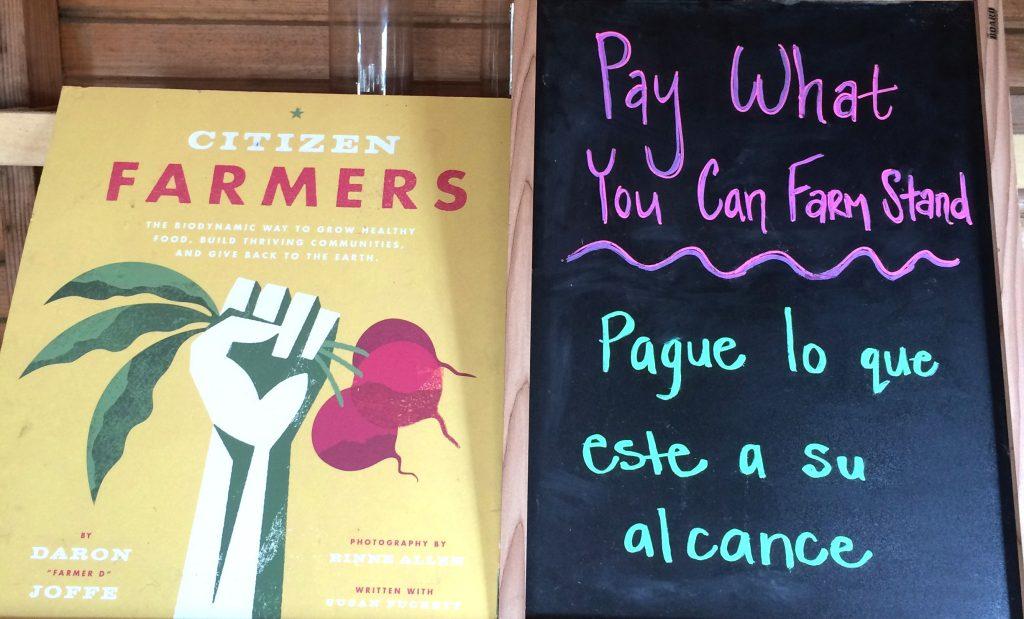 CITIZEN
FARMERS
THE BIODYNAMIC WAY TO GROW HEALTHY
FOOD, BUILD THRIVING COMMUNITIES,
AND GIVE BACK TO THE EARTH.
BY
DARON
"FARMER D"
JOFFE
PHOTOGRAPHY BY
RINNE ALLEN
WRITTEN WITH
SUSAN PUCKETT
Pay What
You Can Farm Stand
Pague lo que
este a su
alcance
BOARD